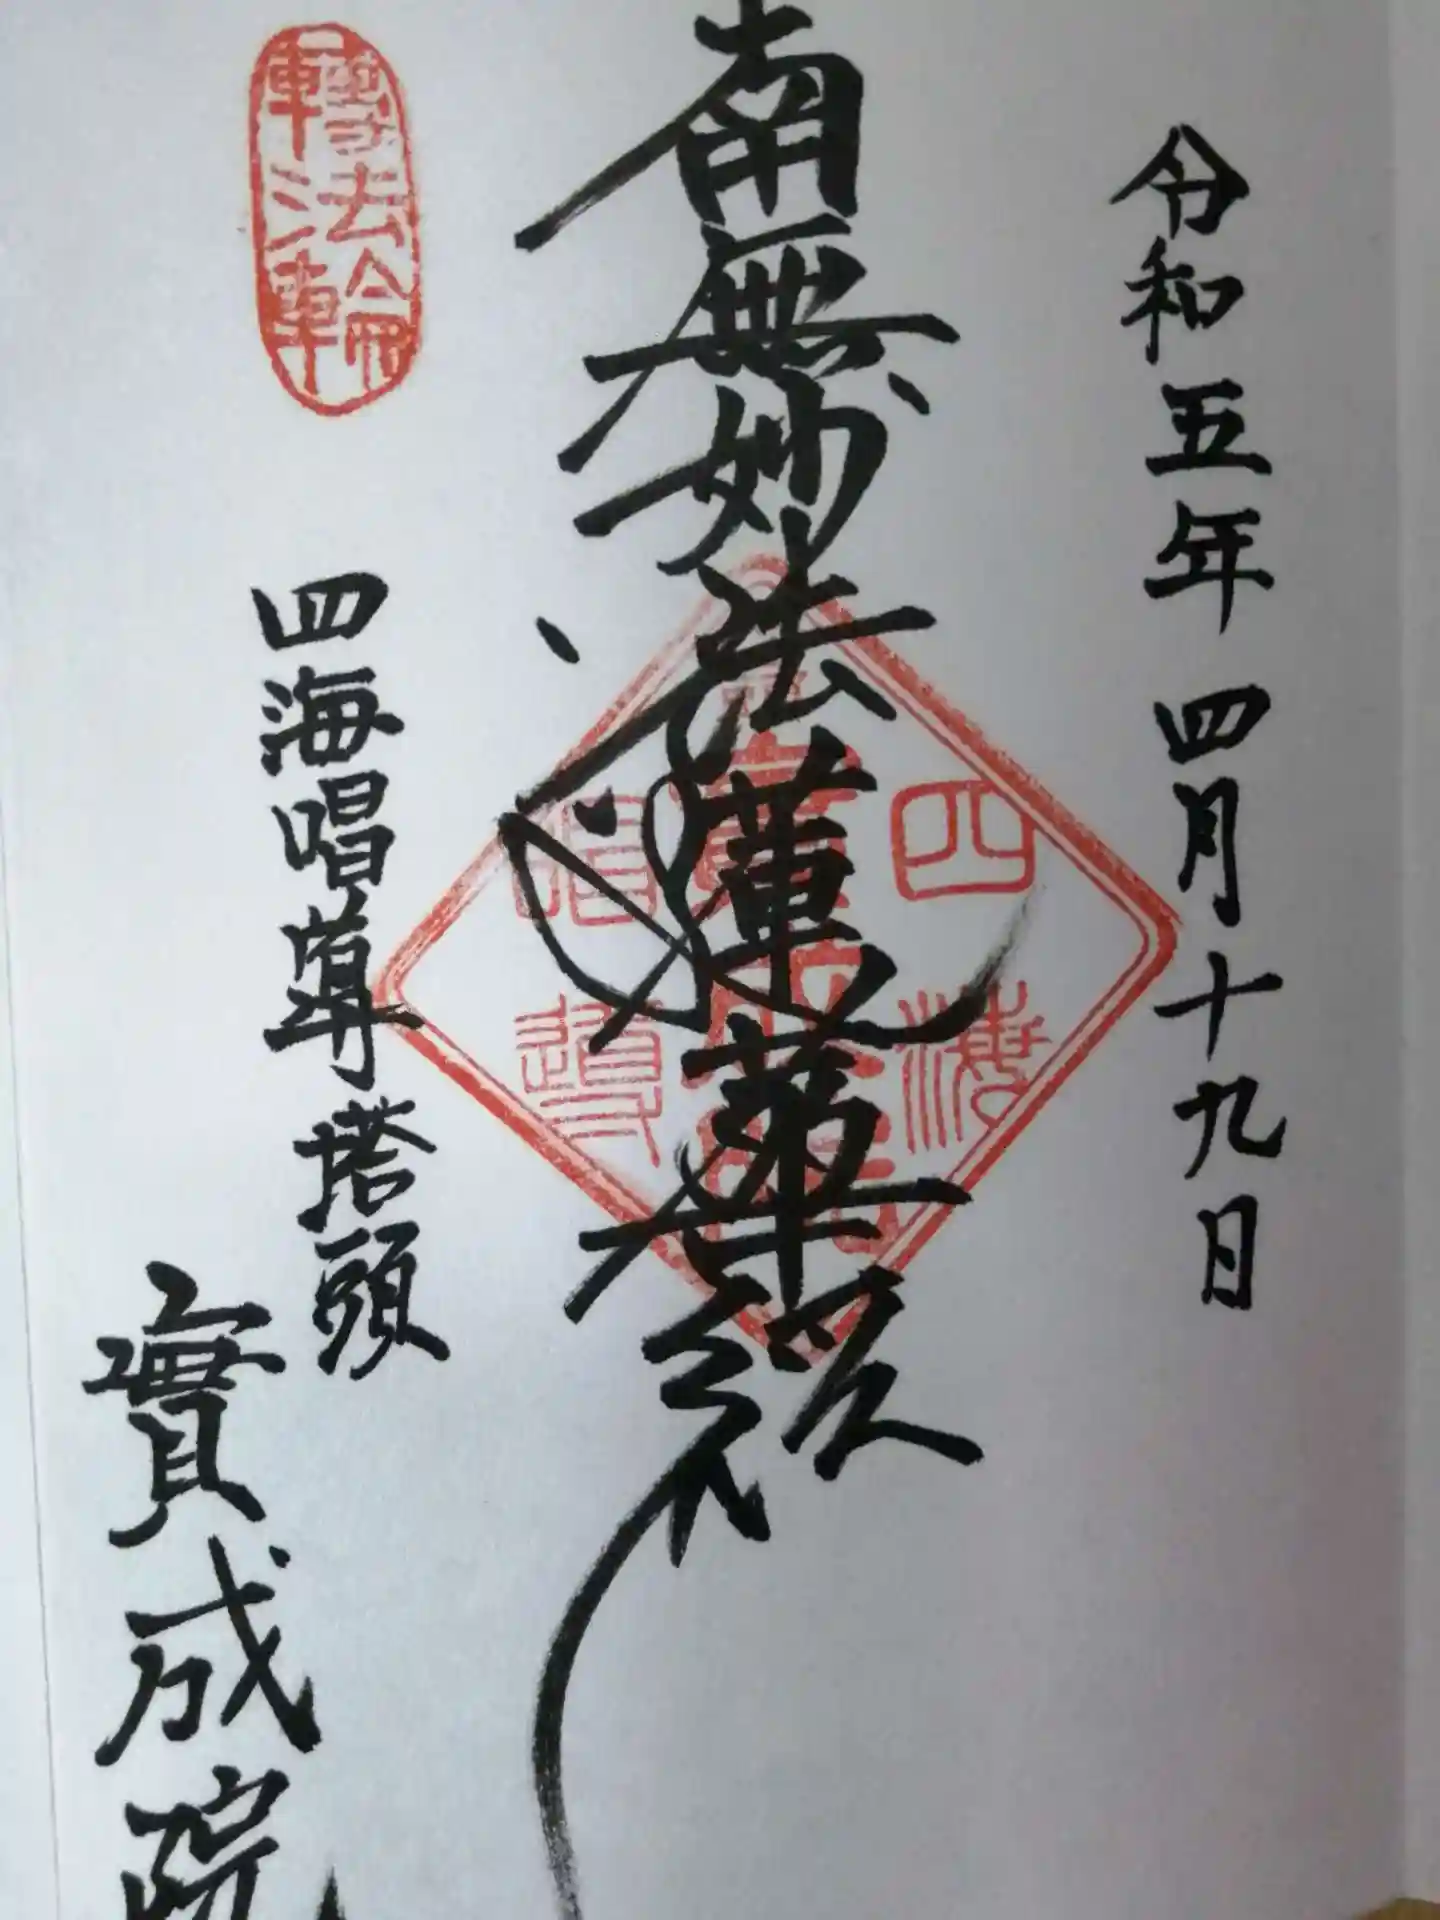 令和五年四月十九日
南無妙法蓮華経
四海唱導塔頭
實成院
轉法輪
四海
唱導